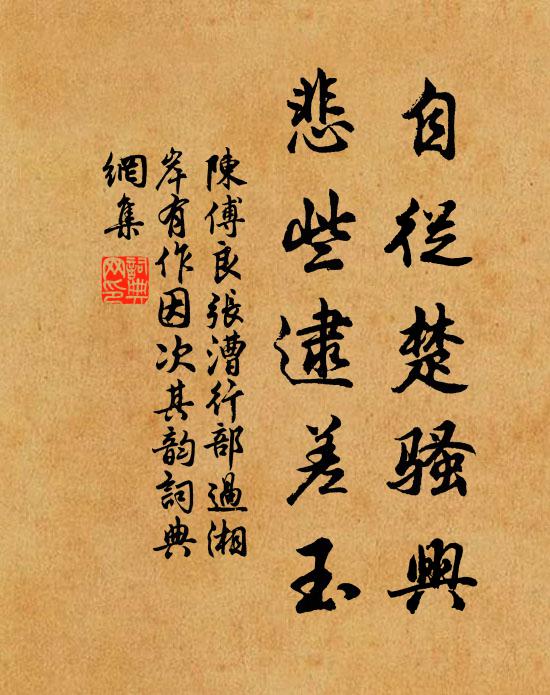 自從楚騷興
悲些逮差玉
陳傅良張漕行部過湘
岸有作因次其韵詞典
網集
詞典
网印